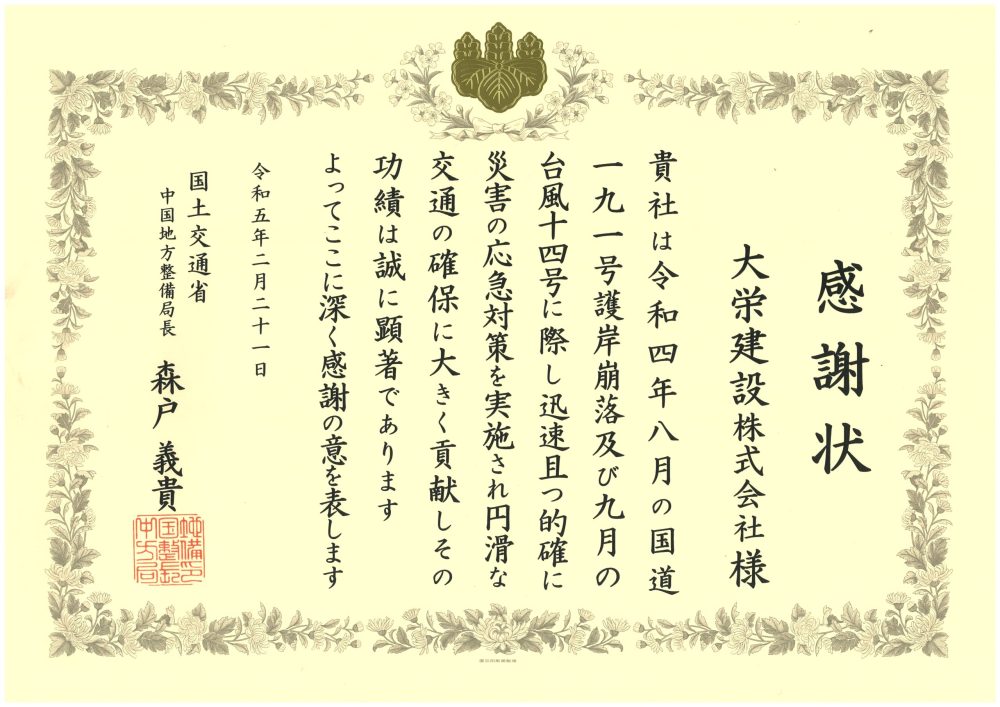 感謝状
大栄建設株式会社様
貴社は令和四年八月の国道
一九一号護岸崩落及び九月の
台風十四号に際し迅速且つ的確に
災害の応急対策を実施され円滑な
交通の確保に大きく貢献しその
功績は誠に顕著であります
よってここに深く感謝の意を表します
令和五年二月二十一日
国土交通省
中国地方整備局長 森戸 義貴